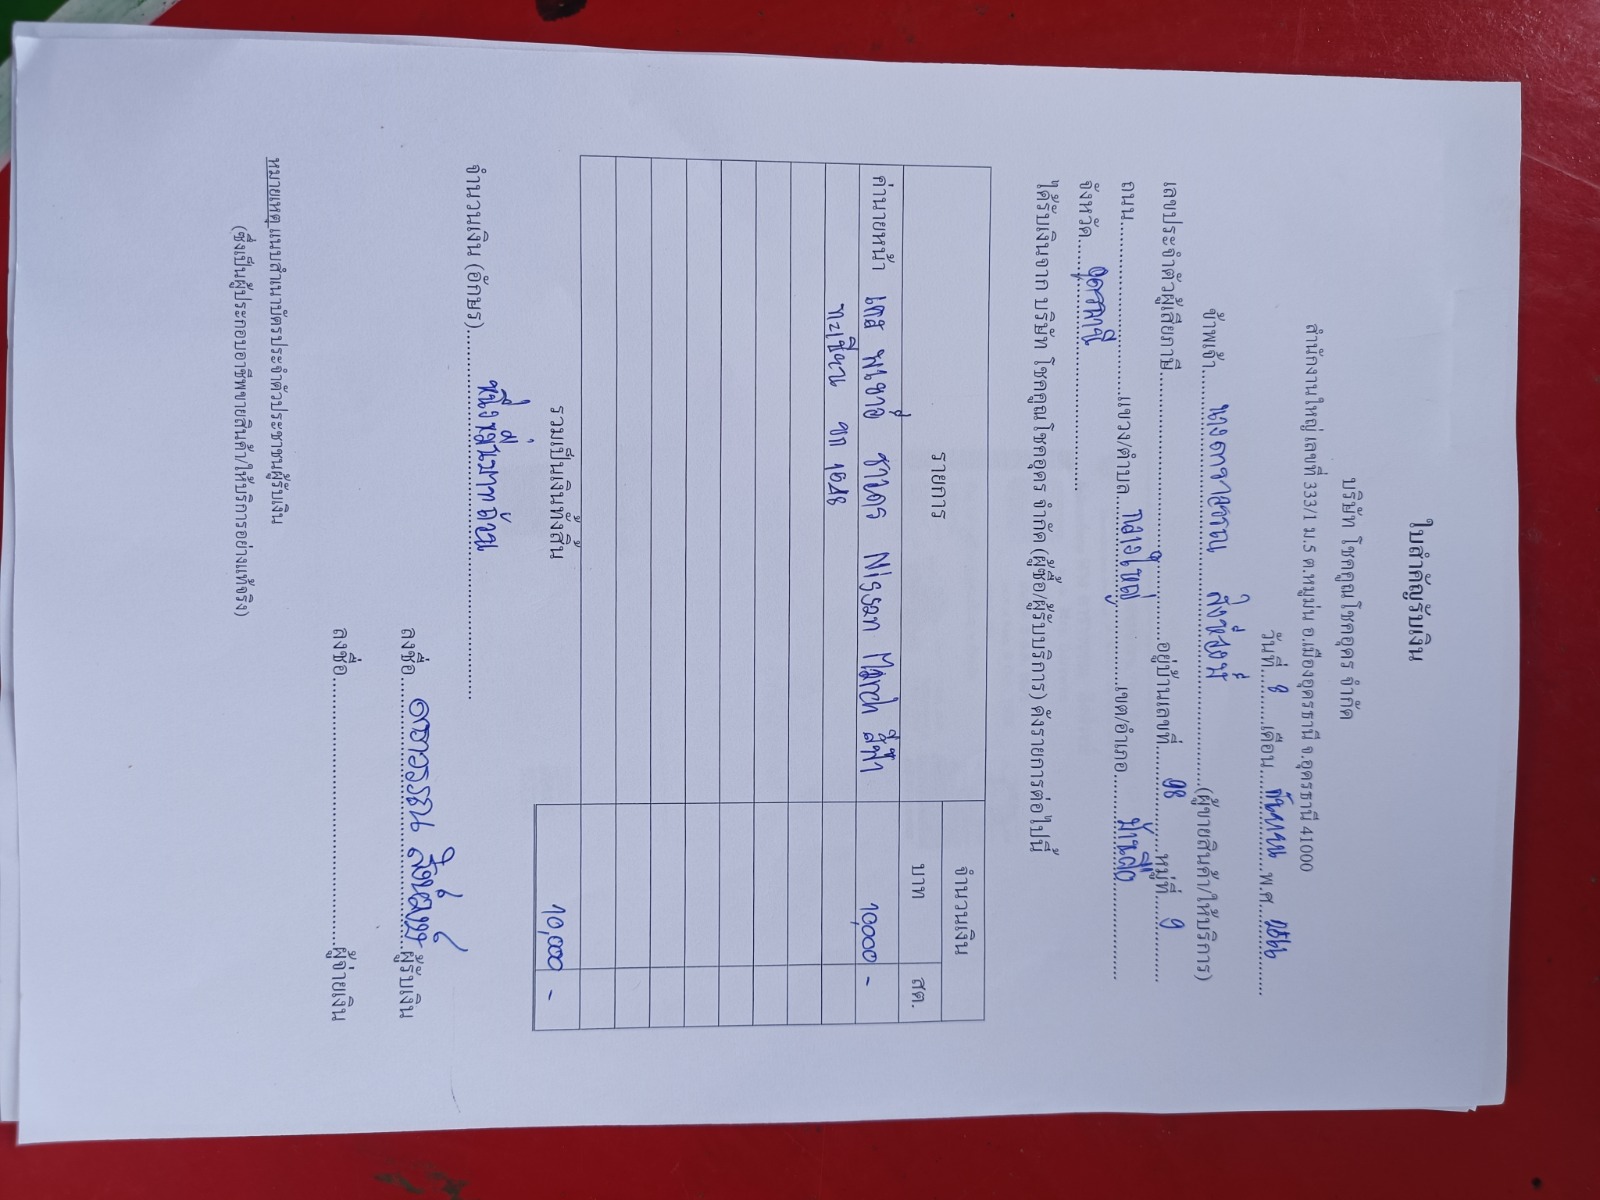 ใบสำคัญรับเงิน
บริษัท โชคคูณโชคอุดร จำกัด
สำนักงานใหญ่ เลขที่ 333/1 ม.5 ต.หมูม่น อ.เมืองอุดรธานี จ.อุดรธานี 41000
วันที่ 8 เดือน กันยายน พ.ศ. 2566
ข้าพเจ้า (ผู้ขายสินค้า/ให้บริการ)
เลขประจำตัวผู้เสียภาษี อยู่บ้านเลขที่ 98 หมู่ที่ 9
ถนน แขวง/ตำบล กลางใหญ่ เขต/อำเภอ บ้านผือ
จังหวัด อุดรธานี
ได้รับเงินจาก บริษัท โชคคูณโชคอุดร จำกัด (ผู้ซื้อ/ผู้รับบริการ) ดังรายการต่อไปนี้
รายการ จำนวนเงิน
บาท สต.
ค่านายหน้า Nissan March สีฟ้า 10,000 -
ทะเบียน
รวมเป็นเงินทั้งสิ้น 10,000 -
จำนวนเงิน (อักษร) หนึ่งหมื่นบาทถ้วน
ลงชื่อ ผู้รับเงิน
ลงชื่อ ผู้จ่ายเงิน
หมายเหตุ แนบสำเนาบัตรประจำตัวประชาชนผู้รับเงิน
(ซึ่งเป็นผู้ประกอบอาชีพขายสินค้า/ให้บริการอย่างแท้จริง)